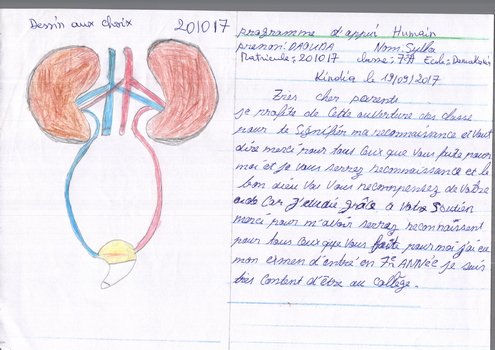 Dessin aux choix 201017
programme d'appui Humain
prenon: DAOUDA Nom: Sylla
Matricule: 201017 classe: 7ª Ecole: Damakania
Kindia le 19/09/2017
Zrer cher parente
je profite de Cette ouverture des classe
pour te Signifier ma reconnaissance et Vous
dire merci pour tous Ceux que Vous faite pour
moi et je Vous serrez reconnaissance et le
bon dieu Vas Vous recompensez de Votre
Car J'etudie grâce à Votre Soutien
merci pour m'avoir serrez reconnaissent
pour tous Ceux que Vous faite pour moi j'ai eu
mon exmen d'entré en 7e ANNéE je suis
très Content d'être au Collège.